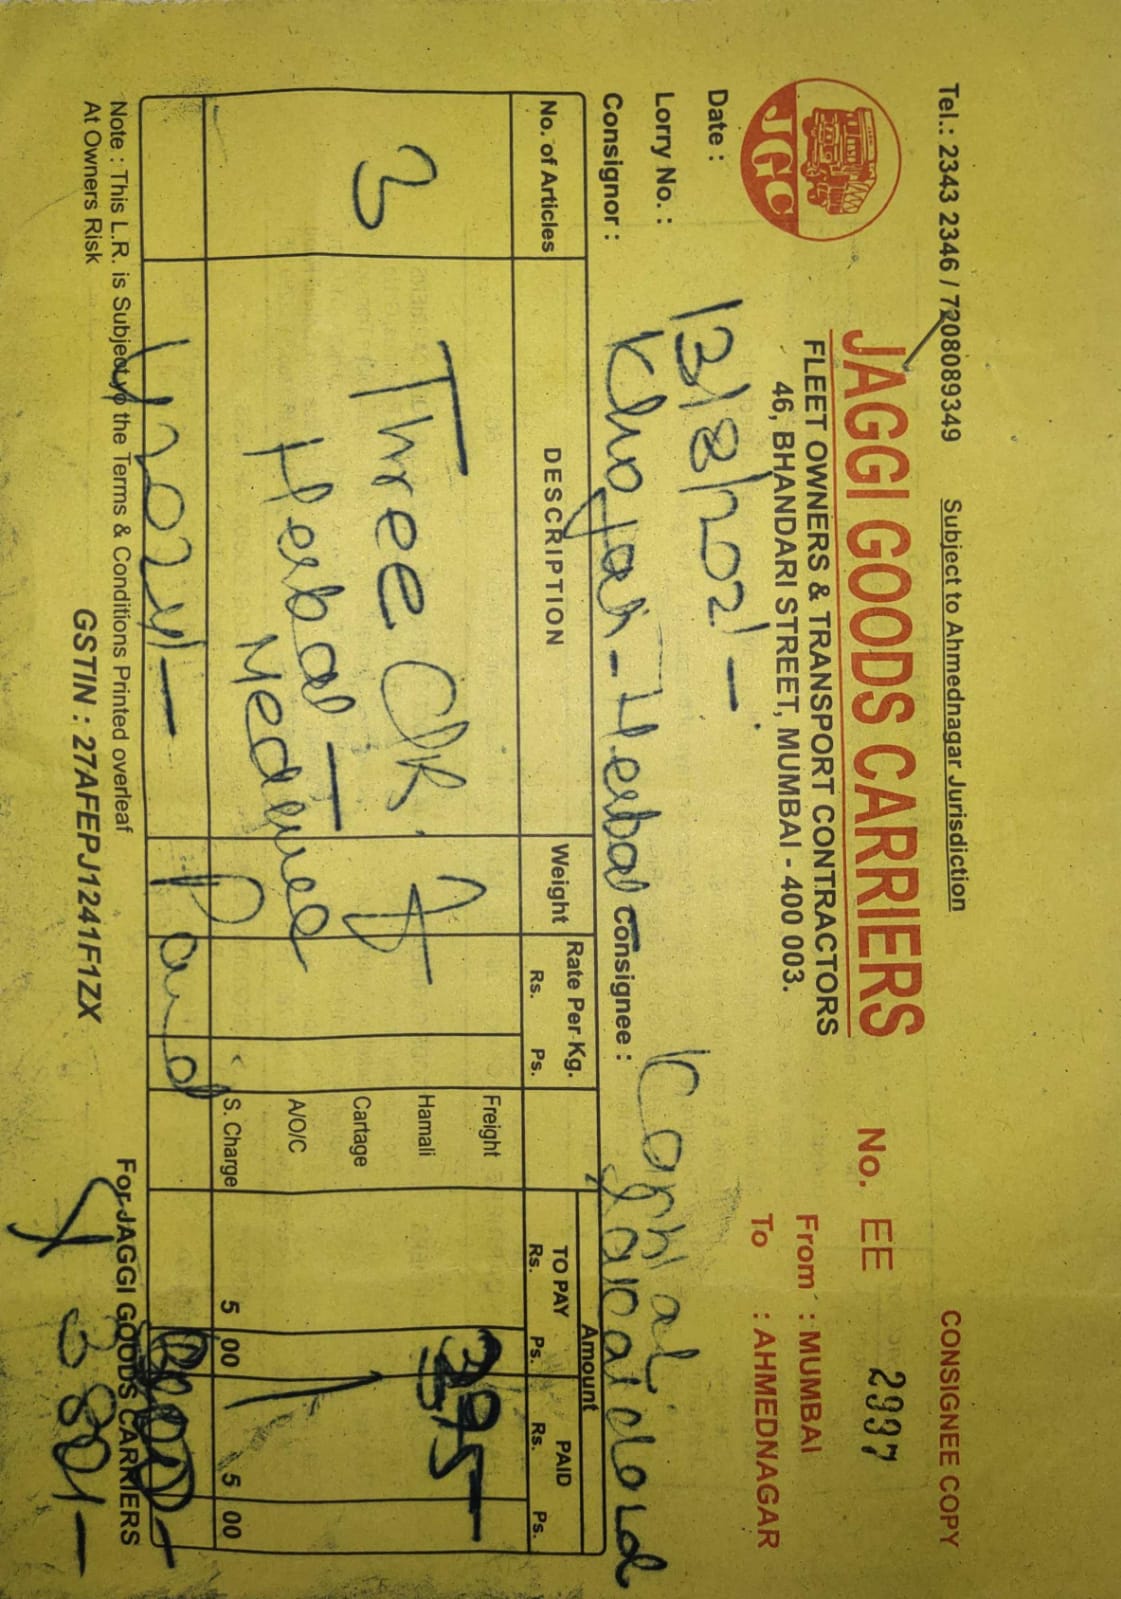 Tel.: 2343 2346 / 7208089349 Subject to Ahmednagar Jurisdiction CONSIGNEE COPY
JGC
JAGGI GOODS CARRIERS
No. EE 2997
FLEET OWNERS & TRANSPORT CONTRACTORS
46, BHANDARI STREET, MUMBAI - 400 003.
From : MUMBAI
To : AHMEDNAGAR
Date : 13/8/2021-
Lorry No. :
Consignor : Khojati-Herbal Consignee : Kamal
No. of Articles DESCRIPTION Weight Rate Per Kg. Amount
Rs. Ps. TO PAY PAID
Rs. Ps. Rs. Ps.
3 Three
Herbal
Medicine
Freight
Hamali
Cartage
A/O/C
S. Charge 5 00 5 00
395
Paid
Note : This L.R. is Subject to the Terms & Conditions Printed overleaf
At Owners Risk
GSTIN : 27AFEPJ1241F1ZX
For JAGGI GOODS CARRIERS